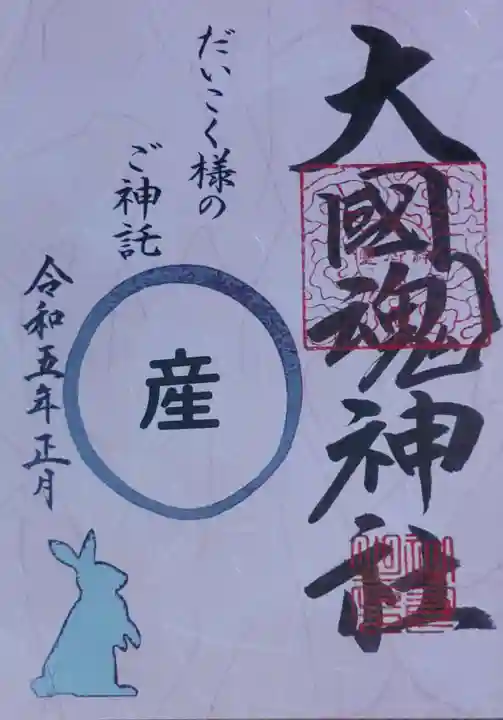 大國魂神社
だいこく様の
ご神託
産
令和五年正月